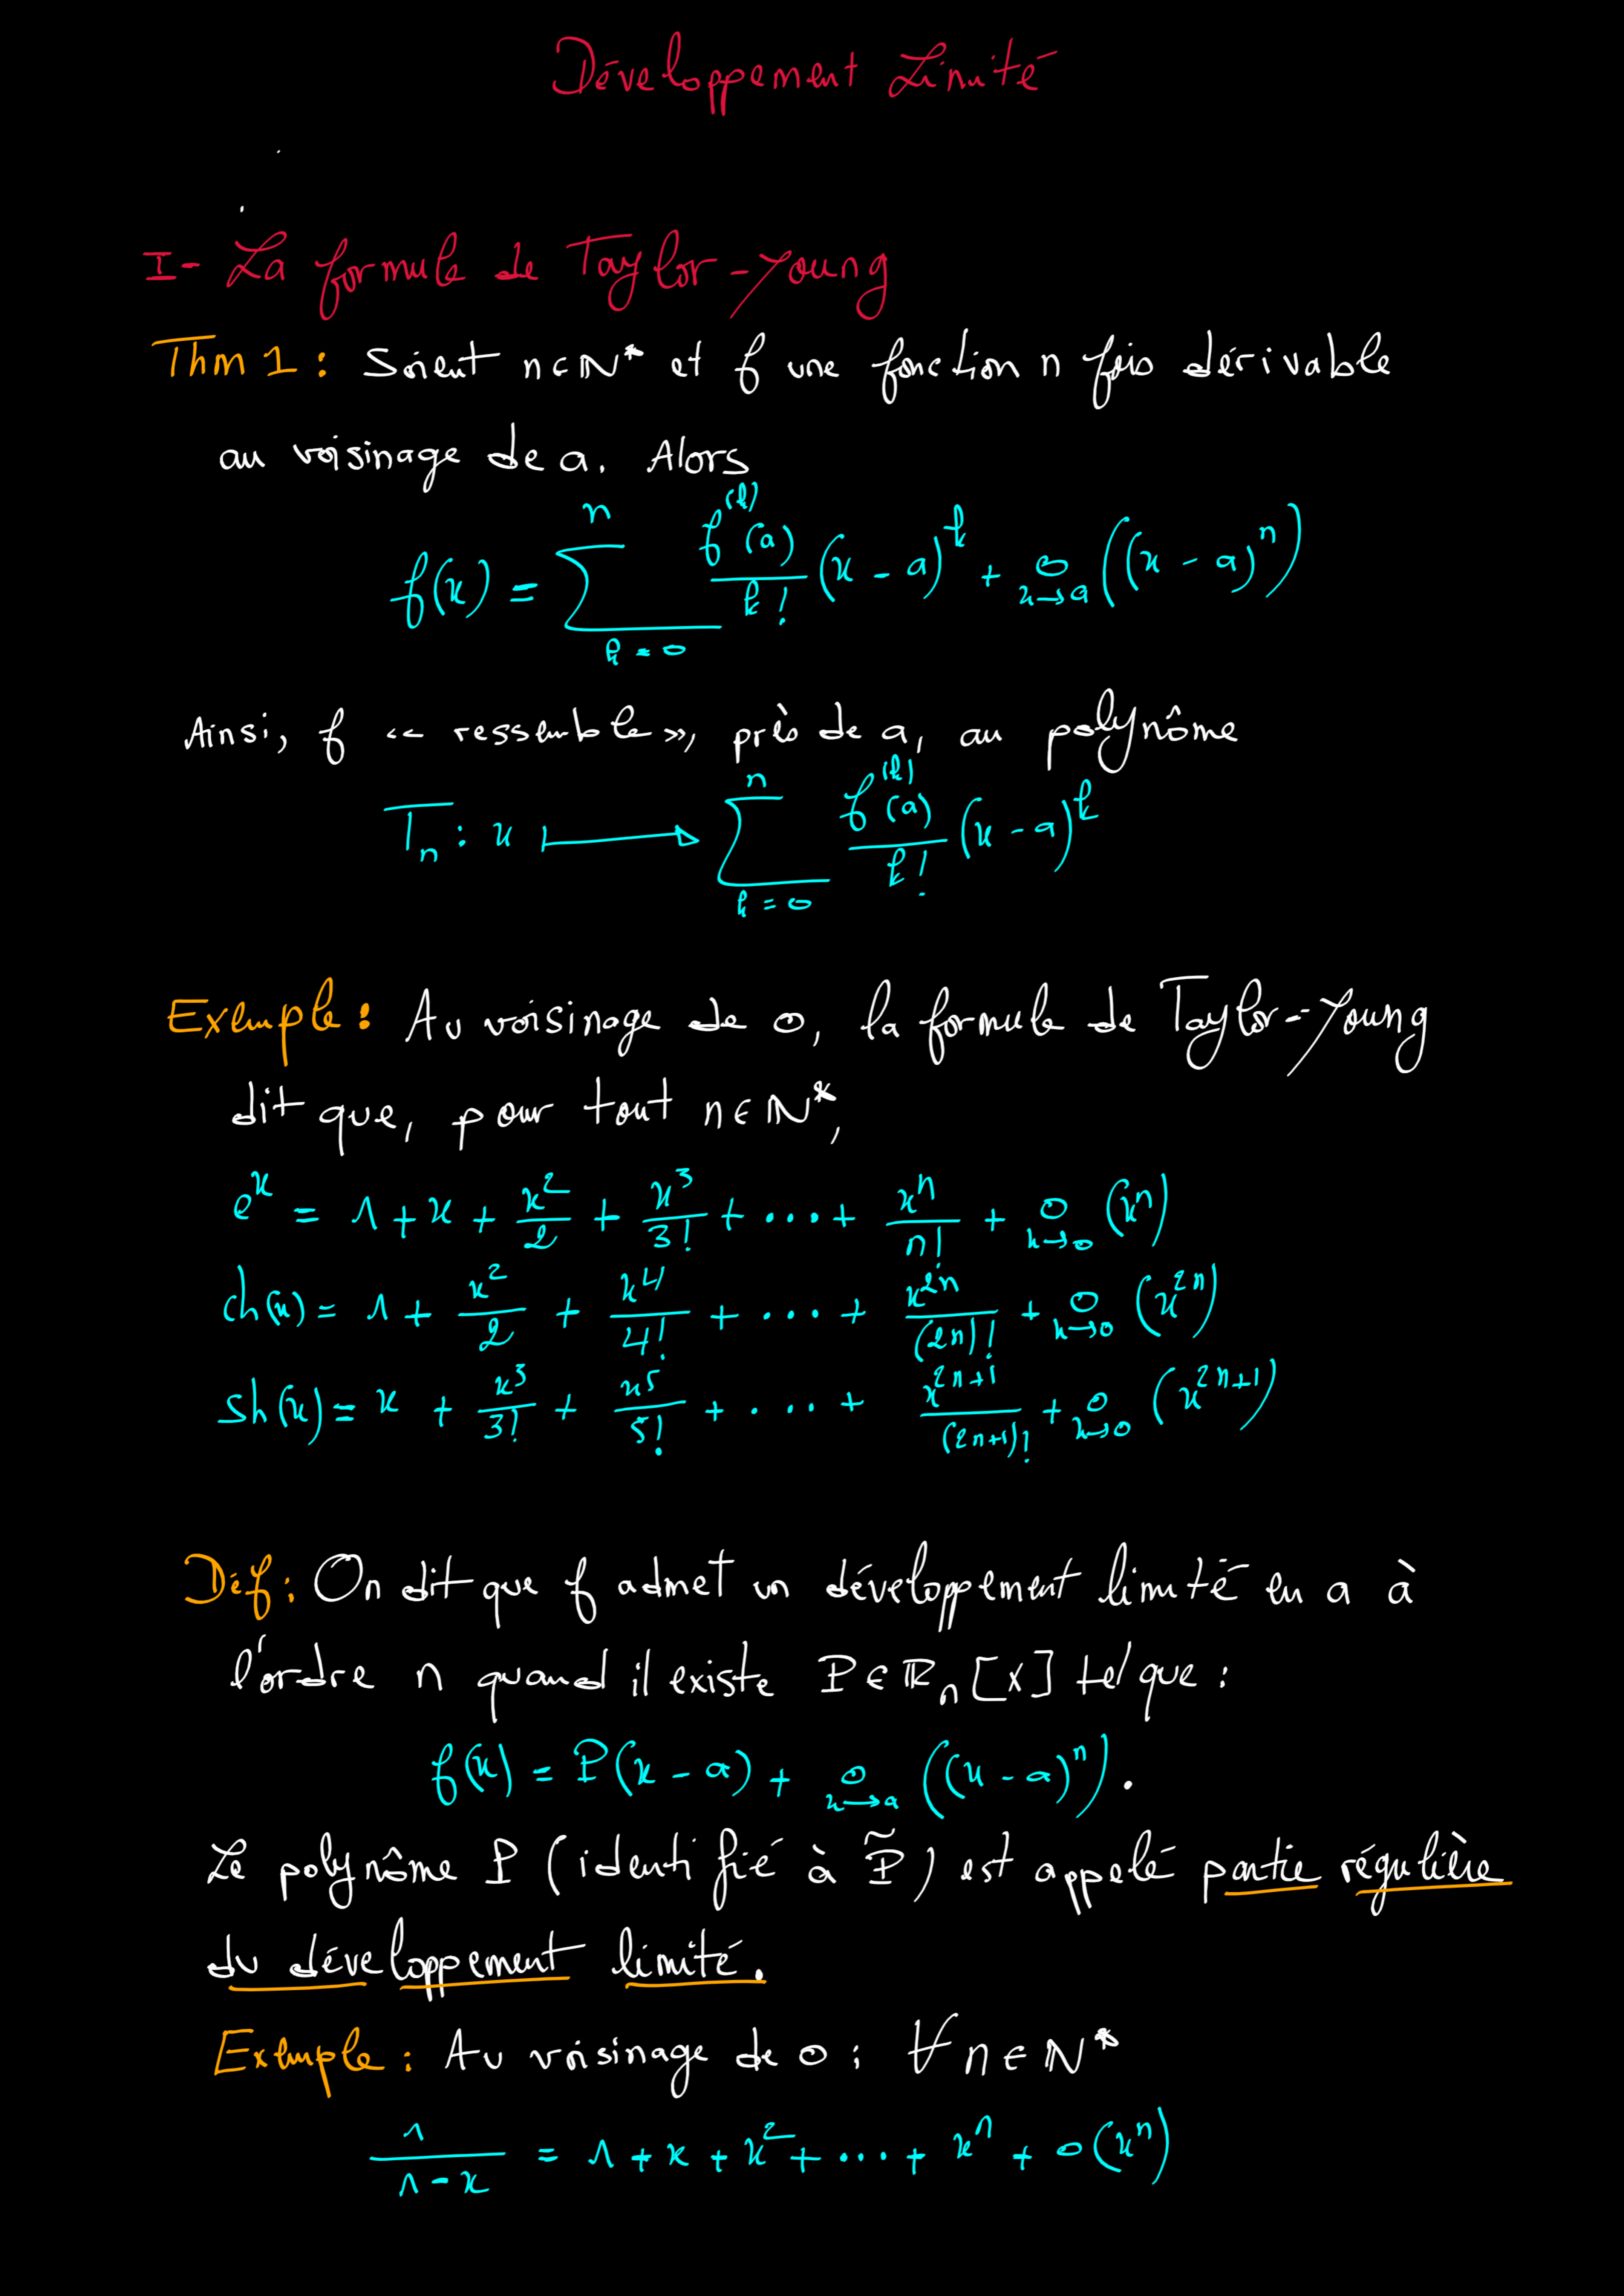 Développement Limité
I- La formule de Taylor-Young
Thm 1 : Soient n ∈ ℕ* et f une fonction n fois dérivable
au voisinage de a. Alors
f(x) = ∑_{k=0}^{n} f^{(k)}(a)/k! (x - a)^k + o_{x→a}((x - a)^n)
Ainsi, f << ressemble >>, près de a, au polynôme
T_n : x ⟼ ∑_{k=0}^{n} f^{(k)}(a)/k! (x - a)^k
Exemple : Au voisinage de 0, la formule de Taylor-Young
dit que, pour tout n ∈ ℕ*,
e^x = 1 + x + x^2/2 + x^3/3! + ... + x^n/n! + o_{x→0}(x^n)
ch(x) = 1 + x^2/2 + x^4/4! + ... + x^{2n}/(2n)! + o_{x→0}(x^{2n})
sh(x) = x + x^3/3! + x^5/5! + ... + x^{2n+1}/(2n+1)! + o_{x→0}(x^{2n+1})
Déf : On dit que f admet un développement limité en a à
l'ordre n quand il existe P ∈ ℝ_n[X] tel que :
f(x) = P(x - a) + o_{x→a}((x - a)^n).
Le polynôme P (identifié à P̃) est appelé partie régulière
du développement limité.
Exemple : Au voisinage de 0 : ∀ n ∈ ℕ*
1/(1 - x) = 1 + x + x^2 + ... + x^n + o(x^n)